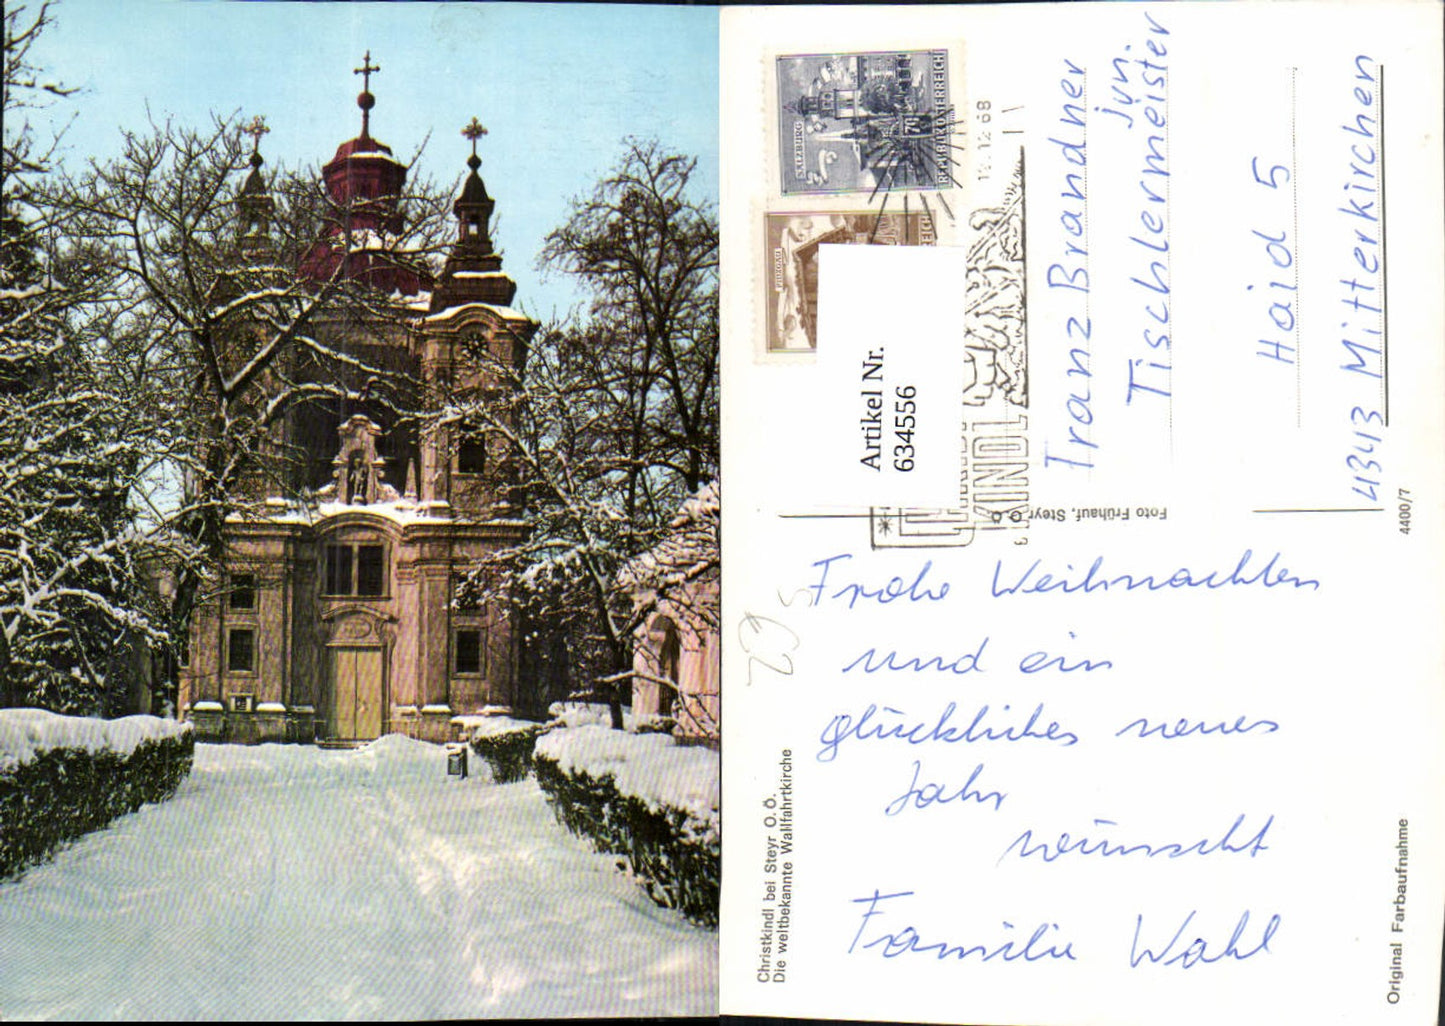 Christkindl bei Steyr O.Ö.
Die weltbekannte Wallfahrtkirche
Frohe Weihnachten
und ein
glückliches neues
Jahr
wünscht
Familie Wahl
Foto Frühauf, Steyr
SALZBURG
70
REPUBLIK ÖSTERREICH
12 68
KINDL
Artikel Nr.
634556
Franz Brandner
jun.
Tischlermeister
Haid 5
4343 Mitterkirchen
4400/7
Original Farbaufnahme